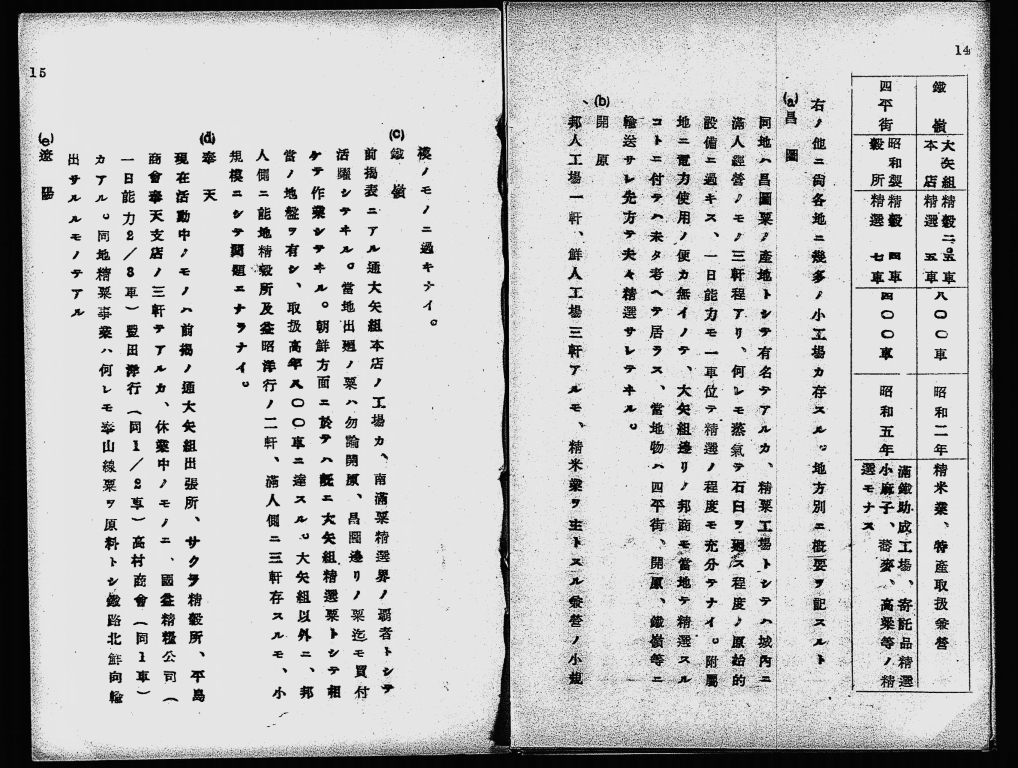 14
鐵嶺 大矢組本店 精穀二。精選 五車 五車 八〇〇車 昭和二年 精米業、特產取扱兼營
四平街 昭和製穀所 精穀 四車 精選 七車 四〇〇車 昭和五年 滿鐵助成工場、寄託品精選 小麻子、蕎麥、高粱等ノ精選モナス
右ノ他ニ尙各地ニ幾多ノ小工場カ存スル。地方別ニ槪要ヲ記スルト
(a) 昌圖
同地ハ昌圖粟ノ產地トシテ有名テアルカ、精粟工場トシテハ城內ニ
滿人經營ノモノ三軒程アリ、何レモ蒸氣テ石臼ヲ廻ス程度ノ原始的
設備ニ過キス、一日能力モ一車位テ精選ノ程度モ充分テナイ。附屬
地ニ電力使用ノ便カ無イノテ、大矢組邊リノ邦商モ當地テ精選スル
コトニ付テハ未タ考ヘテ居ラス、當地物ハ四平街、開原、鐵嶺等ニ
輸送サレ先方テ夫々精選サレテヰル。
(b) 開原
邦人工場一軒、鮮人工場三軒アルモ、精米業ヲ主トスル兼營ノ小規
15
模ノモノニ過キナイ。
(c) 鐵嶺
前揭表ニアル通大矢組本店ノ工場カ、南滿粟精選界ノ覇者トシテ
活躍シテヰル。當地出廻ノ粟ハ勿論開原、昌圖邊リノ粟迄モ買付
ケテ作業シテヰル。朝鮮方面ニ於テハ既ニ大矢組精選粟トシテ相
當ノ地盤ヲ有シ、取扱高年八〇〇車ニ達スル。大矢組以外ニ、邦
人側ニ能地精穀所及益昭洋行ノ二軒、滿人側ニ三軒存スルモ、小
規模ニシテ問題ニナラナイ。
(d) 奉天
現在活動中ノモノハ前揭ノ通大矢組出張所、サクラ精穀所、平島
商會奉天支店ノ三軒テアルカ、休業中ノモノニ、國益精糧公司（
一日能力2／3車）豐田洋行（同1／2車）高村商會（同1車）
カアル。同地精粟事業ハ何レモ奉山線粟ヲ原料トシ鐵路北鮮向輸
出サルルモノテアル
(e) 遼陽